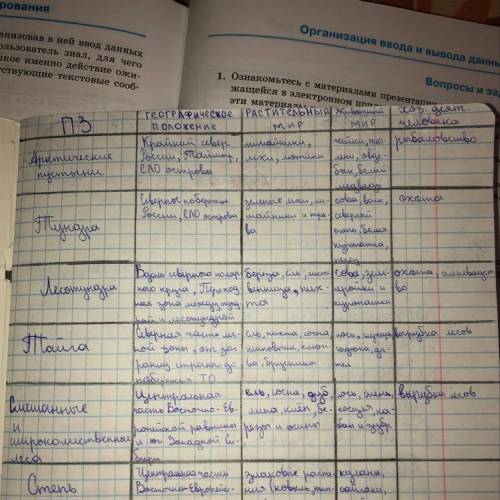 рования
анизовав в ней ввод данных
ользователь знал, для чего
кое именно действие ожи-
тствующие текстовые сооб-
Организация ввода и вывода данны
Вопросы и за
1. Ознакомьтесь с материалами презентации
жащейся в электронном
эти материалы
ПЗ
ГЕОГРАФИЧЕСКОЕ ПОЛОЖЕНИЕ
РАСТИТЕЛЬНЫЙ МИР
ЖИВОТНЫЙ МИР
ХОЗ. ДЕЯТ. человека
Арктические пустыни
Крайний север России, Таймыр, СЛО острова
лишайники, мхи,
чайки, тюлени,
белый медведь
рыболовство
Тундра
Северное побережье России, СЛО острова
зеленые мхи, лишайники и трава
сова, волк, северный олень, белая куропатка, песец
охота
Лесотундра
Вдоль северного полярного круга, Переходная зона между тундрой и лесотундрой
береза, ель, лиственница, пихта
сова,
куропатки
охота, оленеводство
Тайга
Северная часть лесной зоны, от зап границ страны до побережья ТО
ель, пихта, сосна, шиповник,
брусника
лось,
гадюка, дятел
вырубка лесов
Смешанные и широколиственные леса
Центральная часть Восточно-Европейской равнины и юг Западной Сибири
ель, сосна, дуб, липа, клён, березы и осины
лось,
кабан и зубр.
вырубка лесов
Степь
Центральная часть Восточно-Европейс-
злаковые расте-
ния (ковыль, тип-
куланы,
сайгаки,